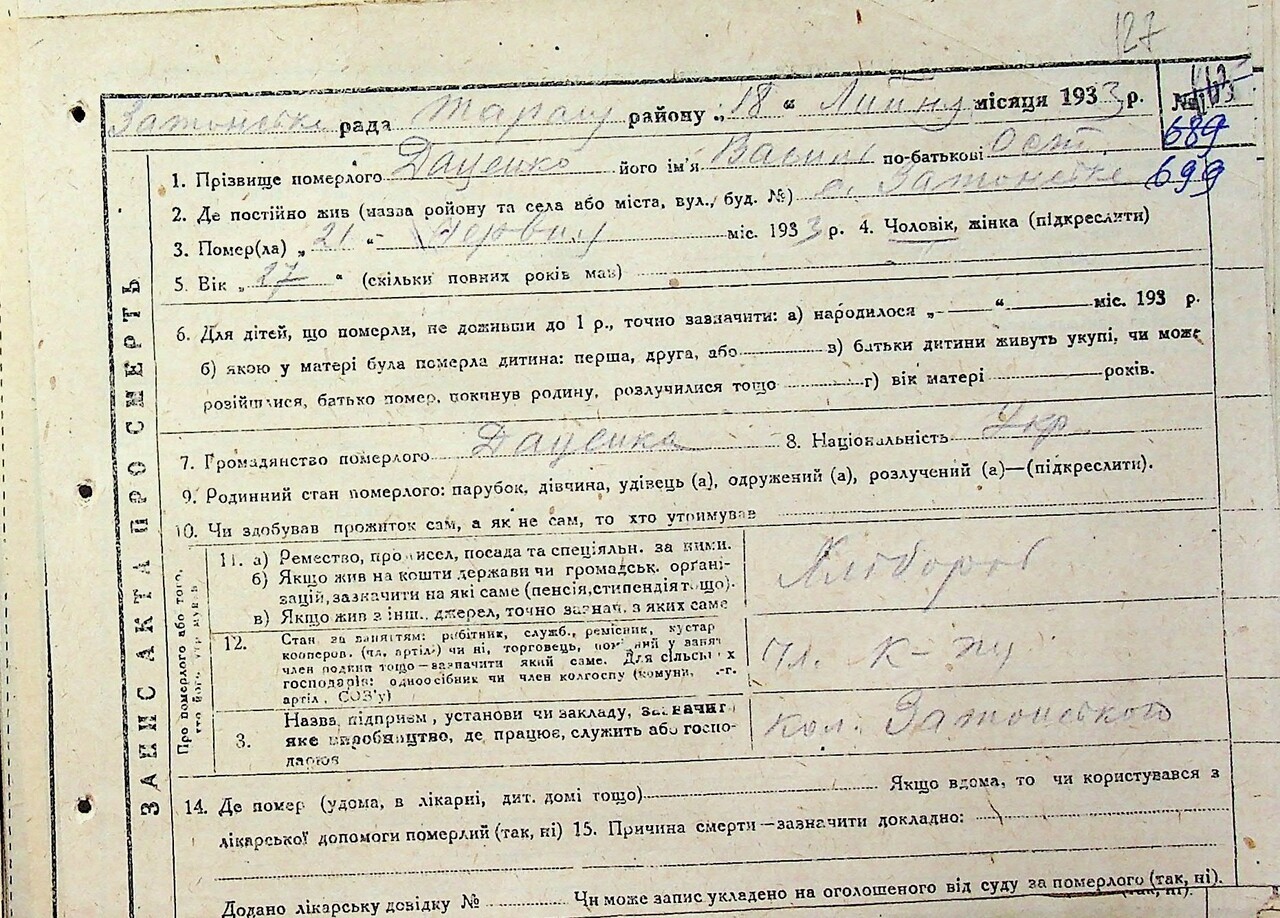 127
Затонське рада Таращ району „18“ Липня місяця 1933 р. №
689
1. Прізвище померлого Даценко його ім'я Василь по-батькові Ост.
699
2. Де постійно жив (назва ройону та села або міста, вул., буд. №) с. Затонське
3. Помер(ла) „21“ Червня міс. 1933 р. 4. Чоловік, жінка (підкреслити)
5. Вік „27“ (скільки повних років мав)
6. Для дітей, що померли, не доживши до 1 р., точно зазначити: а) народилося „—“ міс. 193 р.
б) якою у матері була померла дитина: перша, друга, або в) батьки дитини живуть укупі, чи може
розійшлися, батько помер, покинув родину, розлучилися тощо г) вік матері років.
7. Громадянство померлого Даценка 8. Національність Укр
9. Родинний стан померлого: парубок, дівчина, удівець (а), одружений (а), розлучений (а)—(підкреслити).
10. Чи здобував прожиток сам, а як не сам, то хто утримував
ЗАПИС АКТА ПРО СМЕРТЬ
Про померлого або того,
11. а) Ремество, промисел, посада та спеціяльн. за ними.
б) Якщо жив на кошти держави чи громадськ. органі-
зацій, зазначити на які саме (пенсія, стипендія тощо).
в) Якщо жив з інш. джерел, точно зазнач. з яких саме
Хлібороб
12. Стан за заняттям: робітник, служб., ремісник, кустар
кооперов. (чл. артілі) чи ні, торговець, у занят
член родини тощо—зазначити який саме. Для сільських
господарів: одноосібник чи член колгоспу (комуни, с.-г.
артіл., СОЗ'у)
Чл. к-пу
3. Назва підприєм, установи чи закладу, зазначити
яке виробництво, де працює, служить або госпо-
дарює
кол. Затонського
14. Де помер (удома, в лікарні, дит. домі тощо) Якщо вдома, то чи користувався з
лікарської допомоги померлий (так, ні) 15. Причина смерти—зазначити докладно:
Додано лікарську довідку № Чи може запис укладено на оголошеного від суду за померлого (так, ні).